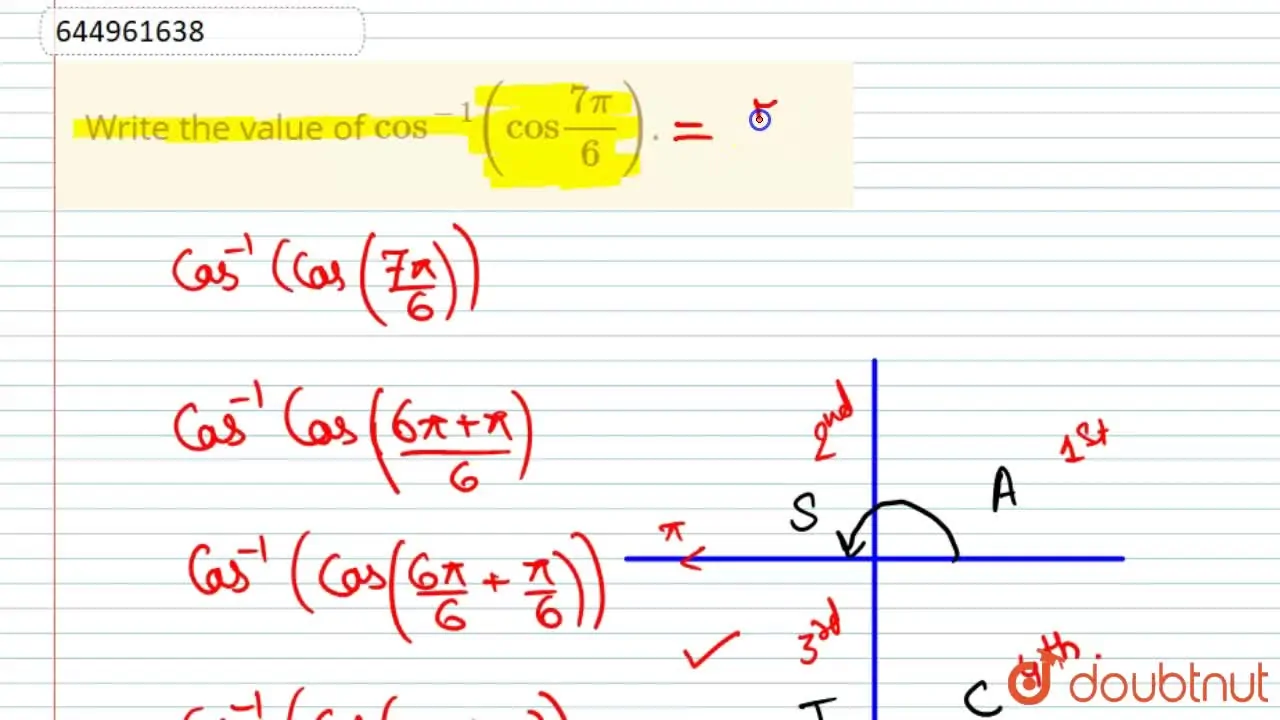 644961638
Write the value of cos⁻¹(cos 7π/6). =
Cos⁻¹ (Cos (7π/6))
Cos⁻¹ Cos (6π+π/6)
Cos⁻¹ (Cos (6π/6 + π/6))
2nd
1st
S
A
π
3rd
4th.
T
C
doubtnut